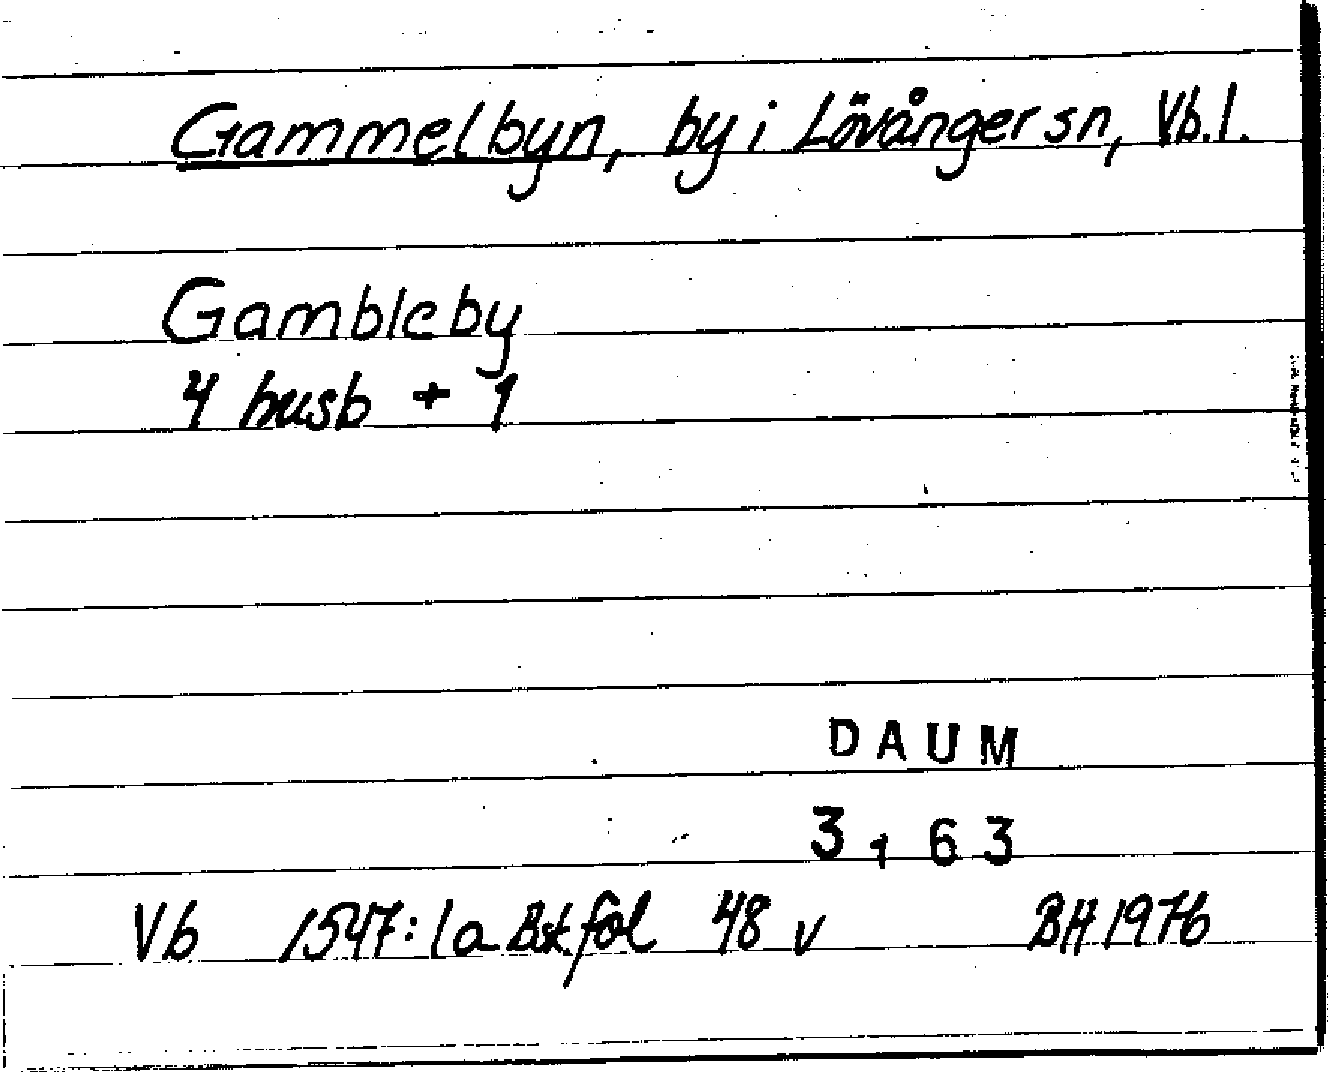 Gammelbyn, by i Lövånger sn, Vb. l.
Gambleby
4 husb + 1
DAUM
3163
Vb 1547:1a Bsk fol 48 v BH 1976